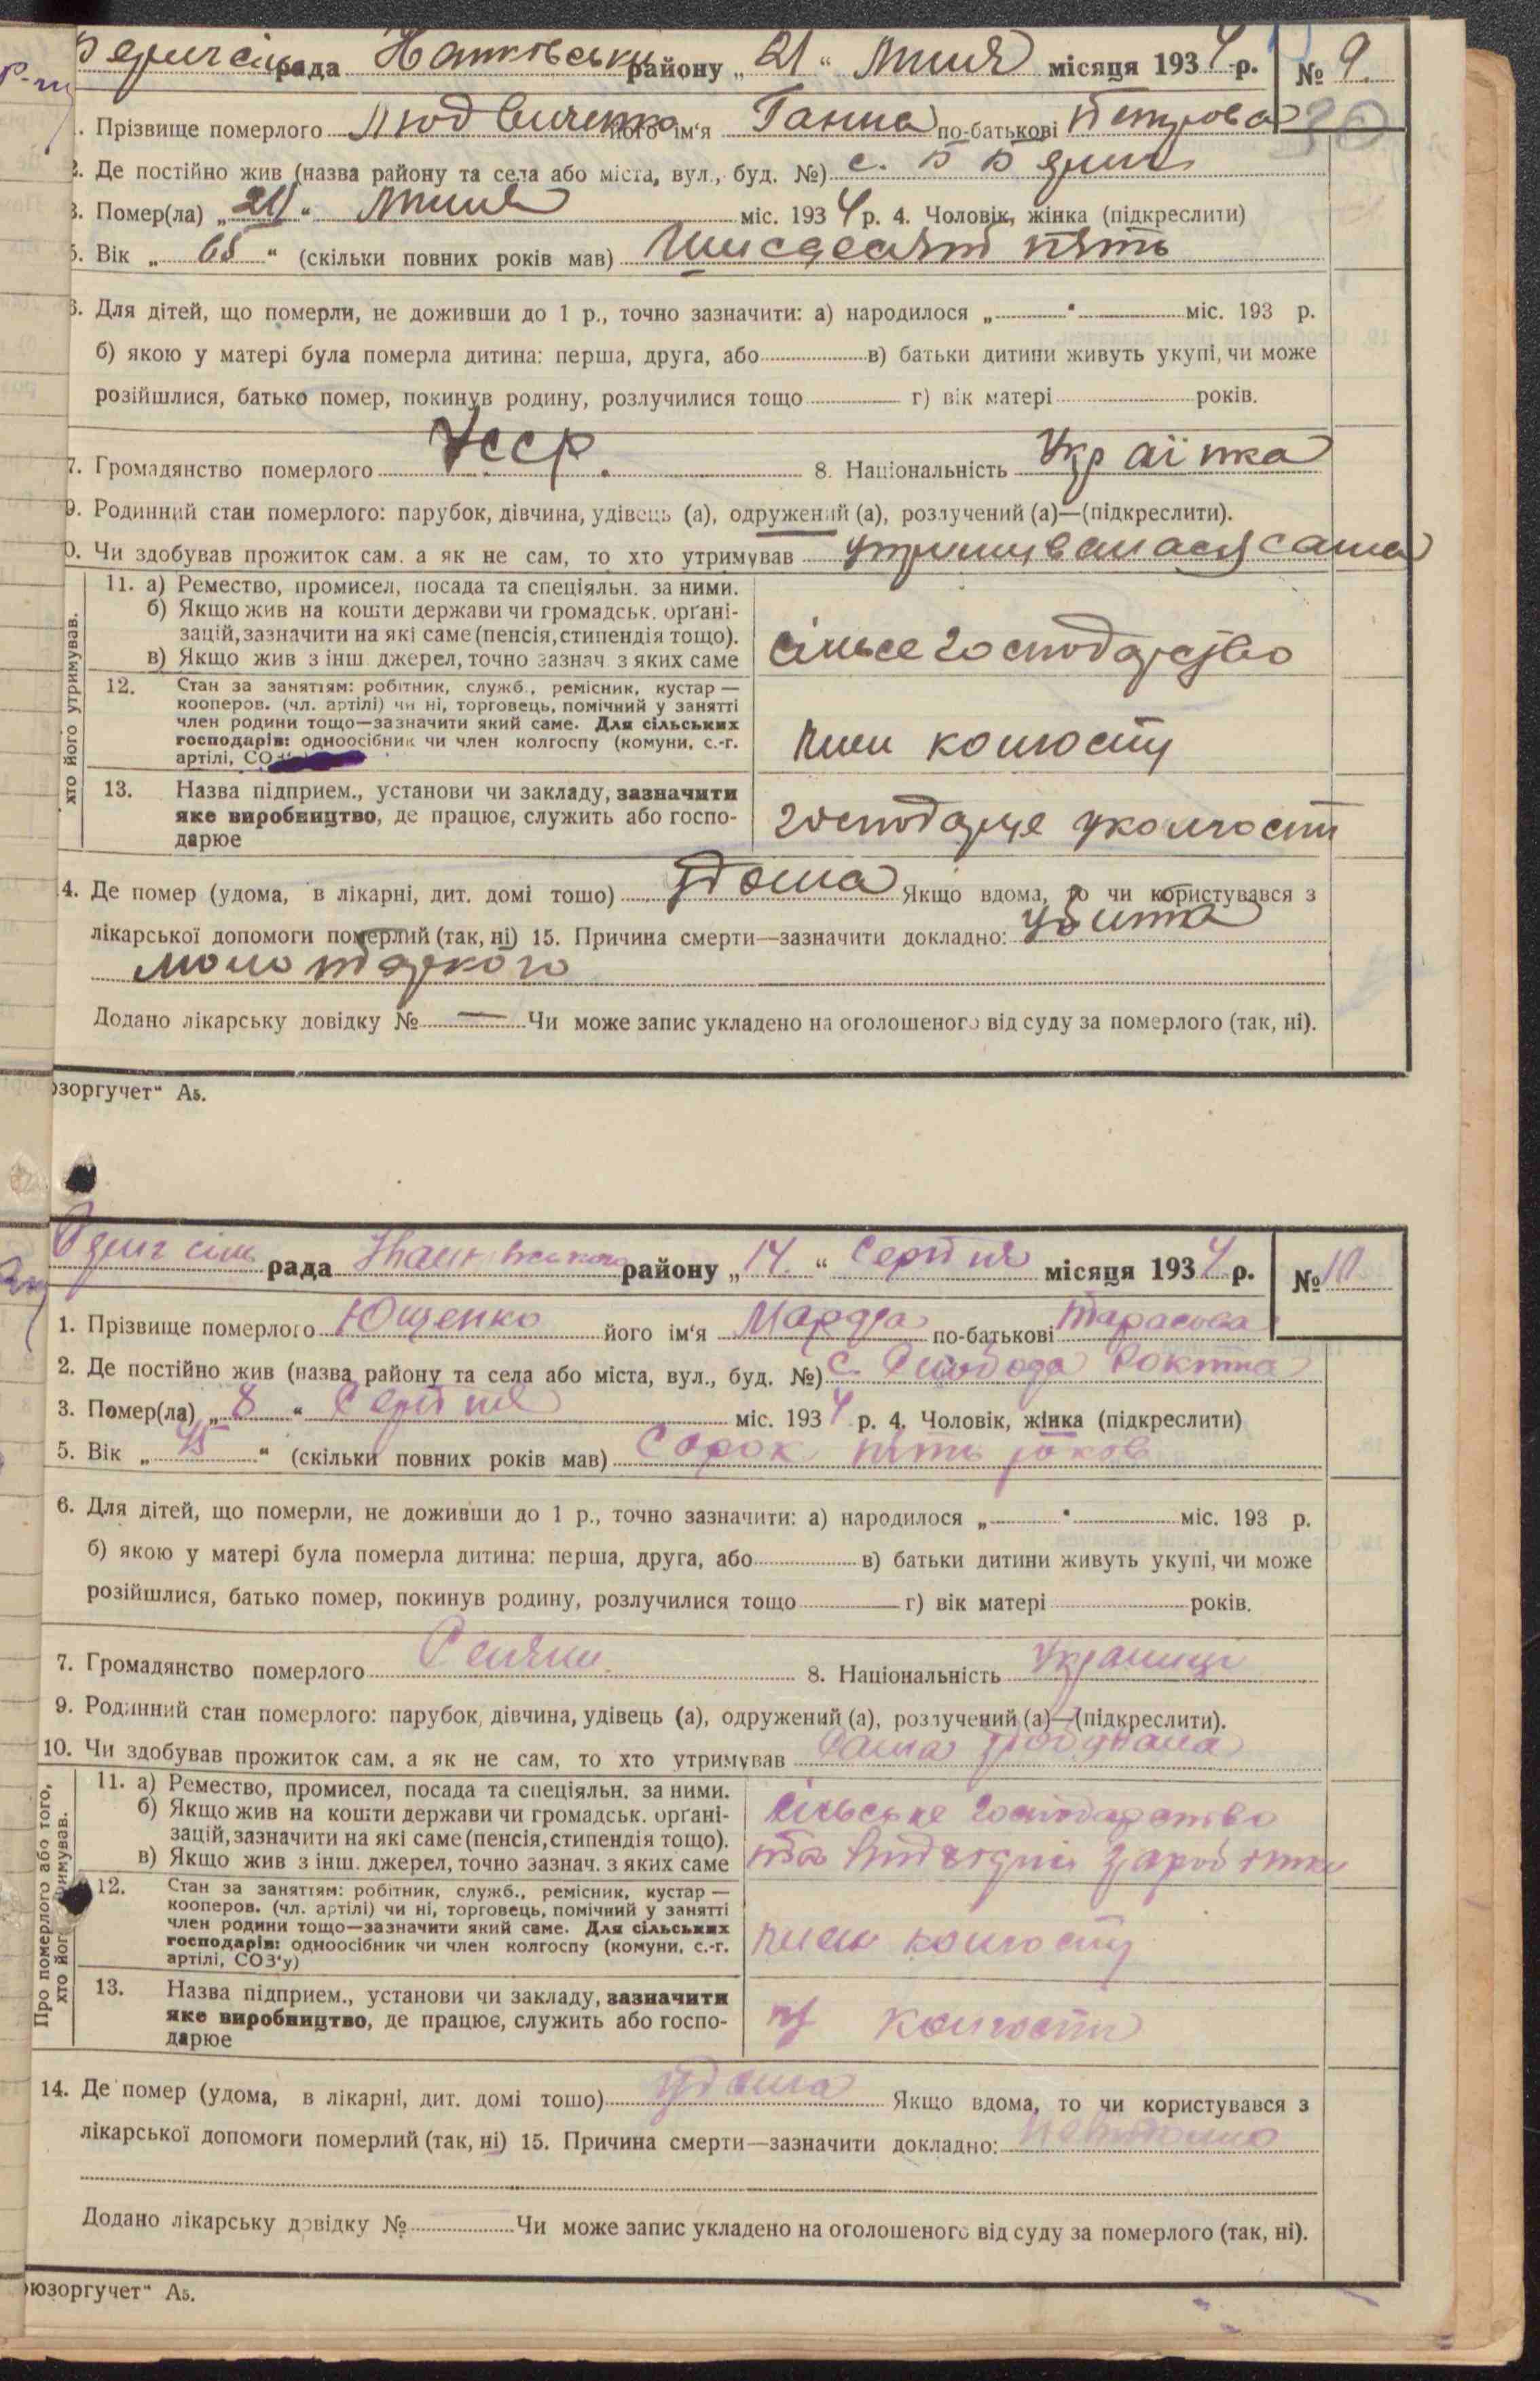 рада району „ 21 “ Липня місяця 1934 р. № 9.
Прізвище померлого Людвиченко його ім'я Ганна по-батькові Петрова
2. Де постійно жив (назва району та села або міста, вул., буд. №) с.
3. Помер(ла) „ 20 “ Липня міс. 1934 р. 4. Чоловік, жінка (підкреслити)
5. Вік „ 65 “ (скільки повних років мав) Шисдесят пять
6. Для дітей, що померли, не доживши до 1 р., точно зазначити: а) народилося „ “ міс. 193 р.
б) якою у матері була померла дитина: перша, друга, або в) батьки дитини живуть укупі, чи може
розійшлися, батько помер, покинув родину, розлучилися тощо г) вік матері років.
7. Громадянство померлого Усср. 8. Національність Українка
9. Родинний стан померлого: парубок, дівчина, удівець (а), одружений (а), розлучений (а)—(підкреслити).
0. Чи здобував прожиток сам. а як не сам, то хто утримував утримувалася сама
хто його утримував.
11. а) Ремество, промисел, посада та спеціяльн. за ними.
б) Якщо жив на кошти держави чи громадськ. орґані-
зацій, зазначити на які саме (пенсія, стипендія тощо).
в) Якщо жив з інш. джерел, точно зазнач. з яких саме
сільсе господарство
12. Стан за заняттям: робітник, служб., ремісник, кустар —
кооперов. (чл. артілі) чи ні, торговець, помічний у занятті
член родини тощо—зазначити який саме. Для сільських
господарів: одноосібник чи член колгоспу (комуни, с.-г.
артілі, СО
член колгоспу
13. Назва підприєм., установи чи закладу, зазначити
яке виробництво, де працює, служить або госпо-
дарює
господарує уколгоспі
4. Де помер (удома, в лікарні, дит. домі тощо) удома Якщо вдома, то чи користувався з
лікарської допомоги померлий (так, ні) 15. Причина смерти—зазначити докладно: убита
молотаркою
Додано лікарську довідку № — Чи може запис укладено на оголошеного від суду за померлого (так, ні).
юзоргучет“ А5.
рада району „ 14. “ Серпня місяця 1934 р. № 10
1. Прізвище померлого Ющенко його ім'я Мара по-батькові Тарасова
2. Де постійно жив (назва району та села або міста, вул., буд. №) с. Слобода
3. Помер(ла) „ 8 “ Серпня міс. 1934 р. 4. Чоловік, жінка (підкреслити)
5. Вік „ 45 “ (скільки повних років мав) Сорок пять роков
6. Для дітей, що померли, не доживши до 1 р., точно зазначити: а) народилося „ “ міс. 193 р.
б) якою у матері була померла дитина: перша, друга, або в) батьки дитини живуть укупі, чи може
розійшлися, батько помер, покинув родину, розлучилися тощо г) вік матері років.
7. Громадянство померлого Селяни 8. Національність Украинци
9. Родинний стан померлого: парубок, дівчина, удівець (а), одружений (а), розлучений (а)—(підкреслити).
10. Чи здобував прожиток сам, а як не сам, то хто утримував Сама
Про померлого або того,
хто його утримував.
11. а) Ремество, промисел, посада та спеціяльн. за ними.
б) Якщо жив на кошти держави чи громадськ. орґані-
зацій, зазначити на які саме (пенсія, стипендія тощо).
в) Якщо жив з інш. джерел, точно зазнач. з яких саме
сільське господарство
та заробітки
12. Стан за заняттям: робітник, служб., ремісник, кустар —
кооперов. (чл. артілі) чи ні, торговець, помічний у занятті
член родини тощо—зазначити який саме. Для сільських
господарів: одноосібник чи член колгоспу (комуни, с.-г.
артілі, СОЗ'у)
член колгоспу
13. Назва підприєм., установи чи закладу, зазначити
яке виробництво, де працює, служить або госпо-
дарює
колгоспі
14. Де помер (удома, в лікарні, дит. домі тощо) удома Якщо вдома, то чи користувався з
лікарської допомоги померлий (так, ні) 15. Причина смерти—зазначити докладно:
Додано лікарську довідку № Чи може запис укладено на оголошеного від суду за померлого (так, ні).
юзоргучет“ А5.